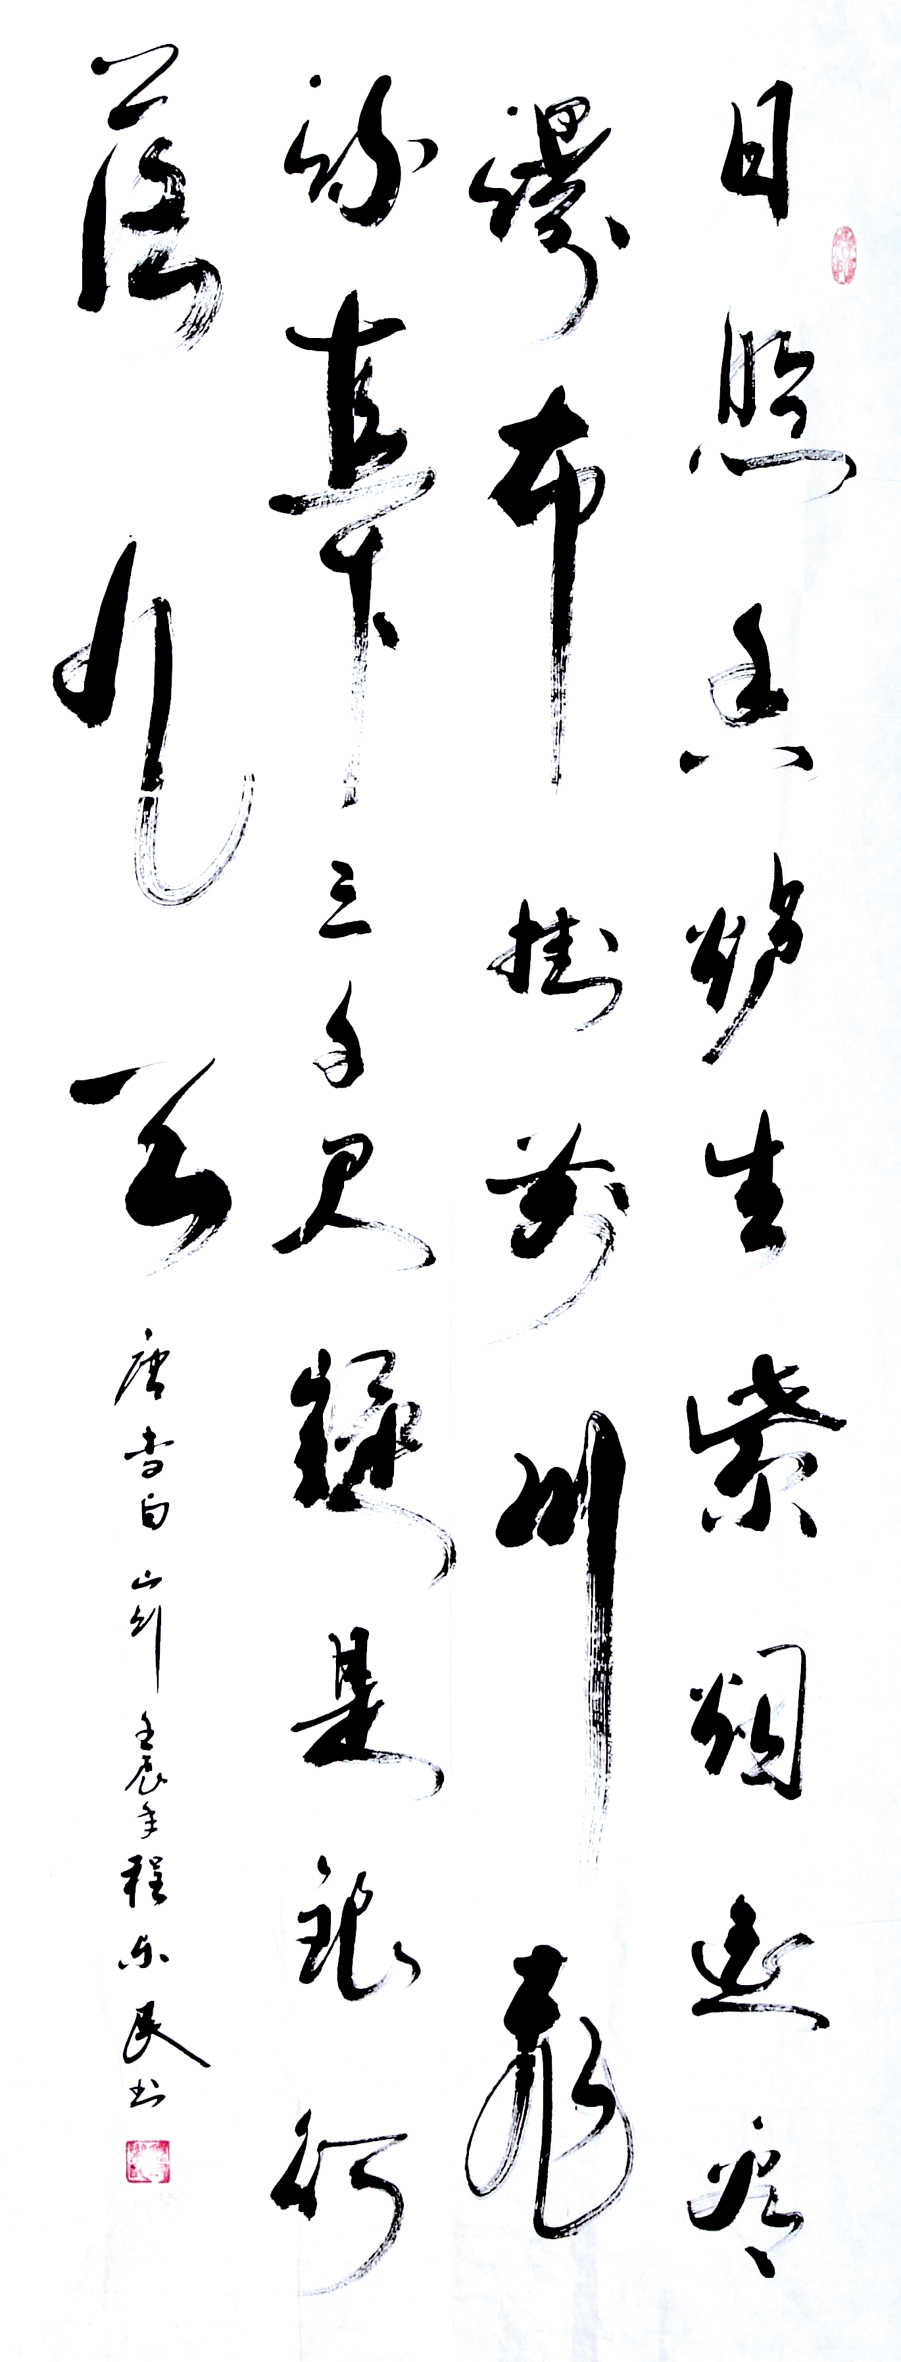 日照香炉生紫烟遥看
瀑布掛前川飛
流直下三千尺疑是银河
落九天
唐李白
壬辰年程民书